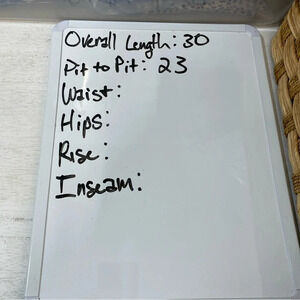 Overall Length: 30
Pit to Pit: 23
Waist:
Hips:
Rise:
Inseam: